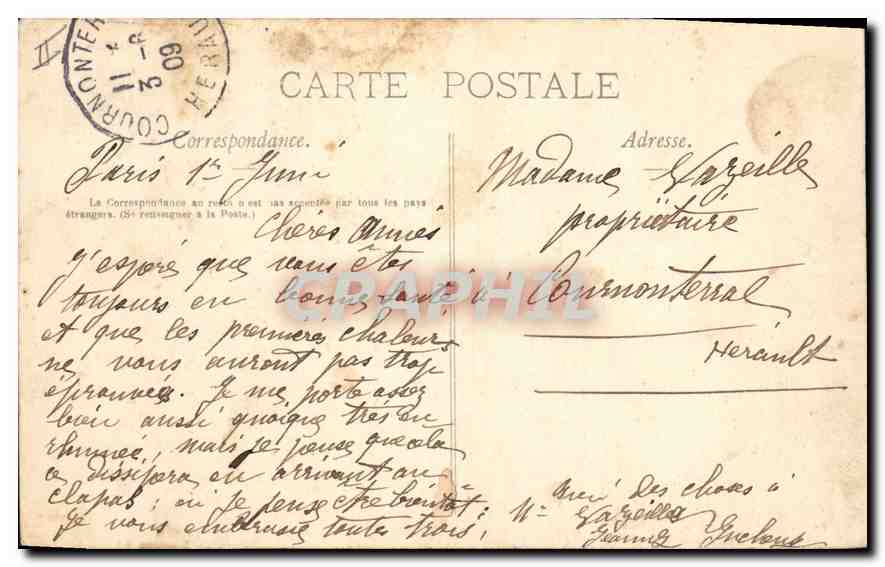 COURNONTER HERAU
11 *
3 -6
09
CARTE POSTALE
Correspondance.
Paris 1er Juin
La Correspondance au recto n'est pas acceptée par tous les pays
étrangers. (Se renseigner à la Poste.)
Chères Amies
J'espère que vous êtes
toujours en bonne santé
et que les premières chaleurs
ne vous auront pas trop
éprouvées. Je me porte assez
bien aussi quoique très en
rhumée, mais je pense que cela
se dissipera en arrivant au
clapas, où je pense être bientôt;
Je vous embrasse toutes trois,
Adresse.
Madame Vazeille
propriétaire
à Cournonterral
Hérault
Bien des choses à
Mr Vazeille
Jeanne
CPAPHIL